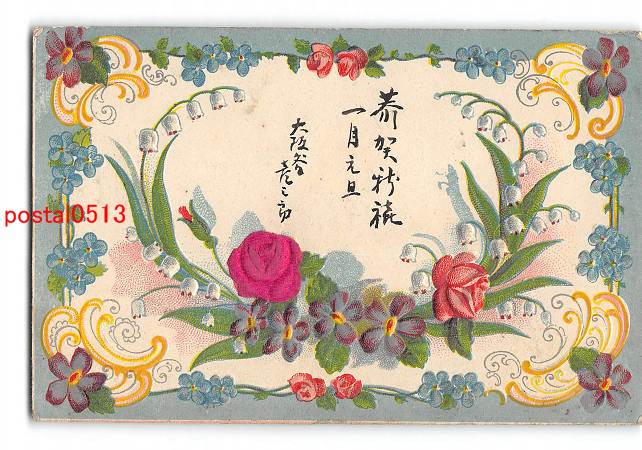 恭賀新禧
一月元旦
大阪谷
postal0513